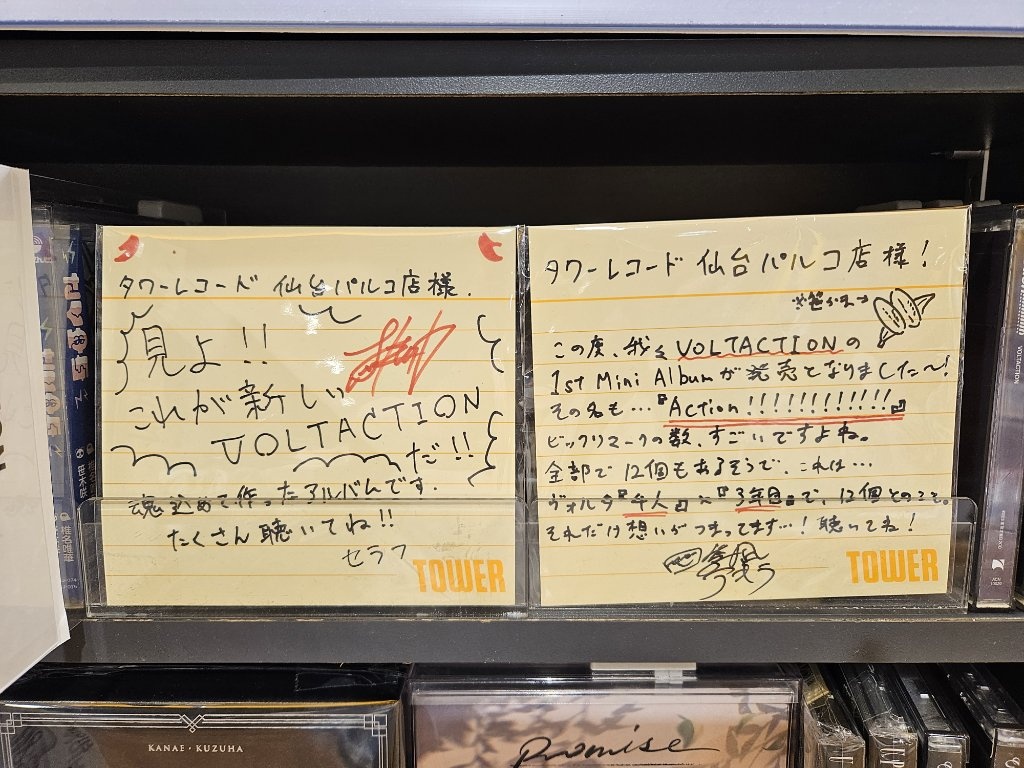 タワーレコード 仙台パルコ店様.
見よ!!
これが新しい
VOLTACTION
だ!!
魂込めて作ったアルバムです.
たくさん聴いてね!!
セラフ
TOWER
タワーレコード 仙台パルコ店様!
※笹かま→
この度、我々 VOLTACTIONの
1st Mini Albumが発売となりました〜!
その名も…『Action!!!!!!!!!!!!』
ビックリマークの数、すごいですよね。
全部で12個もあるそうで、これは…
ヴォルタ『4人』×『3年目』で、12個とのこと。
それだけ想いがつまってます…!聴いてね!
TOWER
KANAE・KUZUHA
Promise
VOLTACTION
椎名唯華